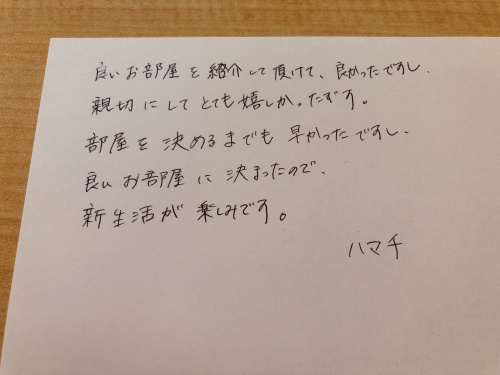 良いお部屋を紹介して頂けて、良かったですし.
親切にしてとても嬉しかったです。
部屋を決めるまでも早かったですし.
良いお部屋に決まったので、
新生活が楽しみです。
ハマチ